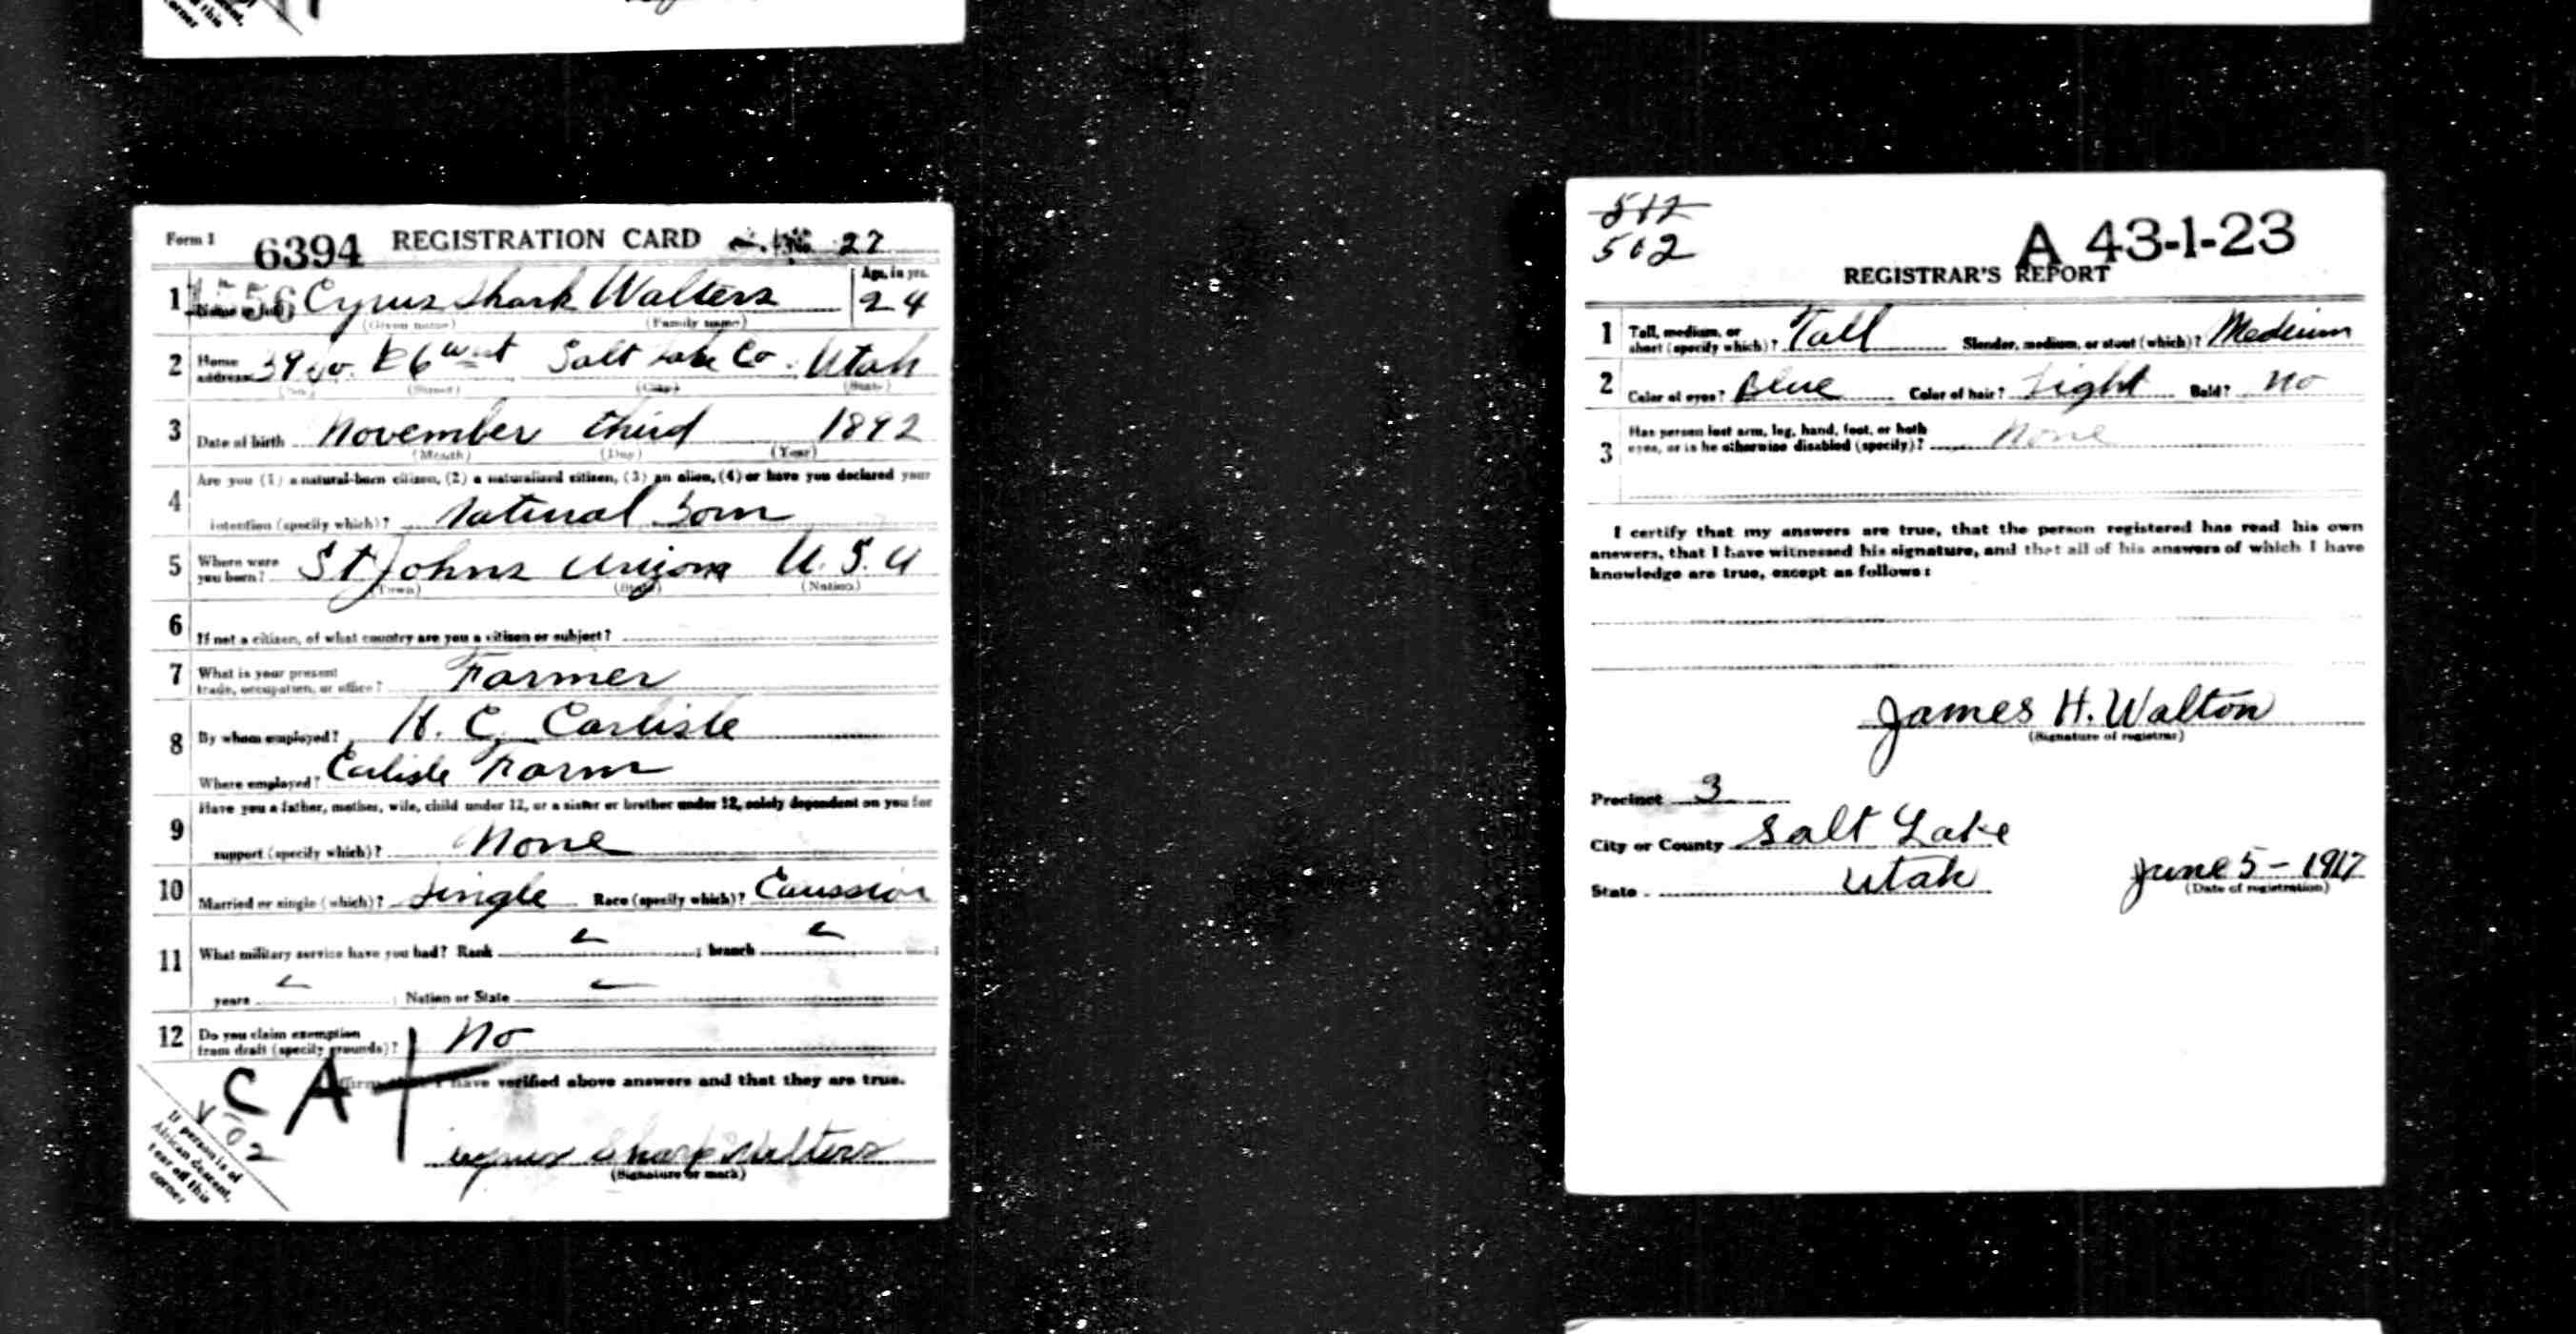 corner
Form 1 6394 REGISTRATION CARD No. 27
1 Name in full Cyrus Shark Walters Age, in yrs. 24
(Given name) (Family name)
2 Home address west Salt Lake Co. Utah
(No.) (Street) (City) (State)
3 Date of birth November third 1892
(Month) (Day) (Year)
4 Are you (1) a natural-born citizen, (2) a naturalized citizen, (3) an alien, (4) or have you declared your
intention (specify which)? Natural born
5 Where were you born? St Johns Arizona U. S. A
(Town) (State) (Nation)
6 If not a citizen, of what country are you a citizen or subject?
7 What is your present trade, occupation, or office? Farmer
8 By whom employed? H. C. Carlisle
Where employed? Carlisle Farm
9 Have you a father, mother, wife, child under 12, or a sister or brother under 12, solely dependent on you for
support (specify which)? None
10 Married or single (which)? Single Race (specify which)?
11 What military service have you had? Rank ; branch ;
years ; Nation or State
12 Do you claim exemption from draft (specify grounds)? No
C A
have verified above answers and that they are true.
502
If person is of
African descent,
tear off this
corner
Cyrus Sharp Walters
(Signature or mark)
512
502
A 43-1-23
REGISTRAR'S REPORT
1 Tall, medium, or short (specify which)? Tall Slender, medium, or stout (which)? Medium
2 Color of eyes? Blue Color of hair? Light Bald? No
3 Has person lost arm, leg, hand, foot, or both
eyes, or is he otherwise disabled (specify)? None
I certify that my answers are true, that the person registered has read his own
answers, that I have witnessed his signature, and that all of his answers of which I have
knowledge are true, except as follows:
James H. Walton
(Signature of registrar)
Precinct 3
City or County Salt Lake
State Utah June 5 - 1917
(Date of registration)